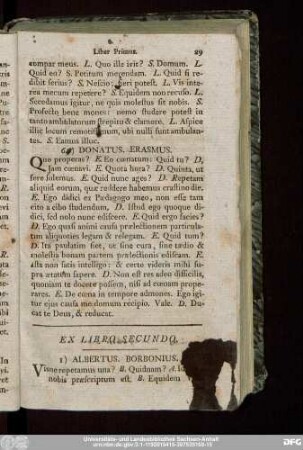 Liber Primus. 29
compar meus. L. Quo ille irit? S. Domum. L.
Quid eo? S. Petitum megendam. L. Quid si re-
dibit serius? S. Nescio; fieri potest. L. Vis interea
mecum repetere? S. Equidem non recuso. L.
Secedamus igitur, ne quis molestus sit nobis. S.
Profecto bene mones: nemo studare potest in
tanto ambulatorum strepitu & clamore. L. Aspice
illic locum remotissimum, ubi nulli sunt ambulan-
tes. S. Eamus illuc.
DONATUS. ERASMUS.
Quo properas? E. Eo coenatum: Quid tu? D.
Jam coenavi. E. Quota hora? D. Quinta, ut
fere solemus. E. Quid nunc ages? D. Repetam
aliquid eorum, quæ reddere habemus crastino die.
E. Ego didici ex Pædagogo meo, non esse tam
cito a cibo studendum. D. Istud ego quoque di-
dici, sed nolo nunc ediscere. E. Quid ergo facies?
D. Ego quasi animi causa prælectionem particula-
tim aliquoties legam & relegam. E. Quid tum?
D. Ita paulatim fiet, ut sine cura, sine tædio &
molestia bonam partem prælectionis ediscam. E.
ista non satis intellego: & certo videris mihi su-
pra ætatem sapere. D. Non est res adeo difficilis,
quoniam te docere possem, nisi ad cœnam prope-
rares. E. De cœna in tempore admones. Ego igi-
tur ejus causa me domum recipio. Vale. D. Du-
cat te Deus, & reducat.
EX LIBRO SECUNDO.
1) ALBERTUS. BORBONIUS.
Visne repetamus una? B. Quidnam?
nobis præscriptum est. B. Equidem
Universitäts- und Landesbibliothek Sachsen-Anhalt